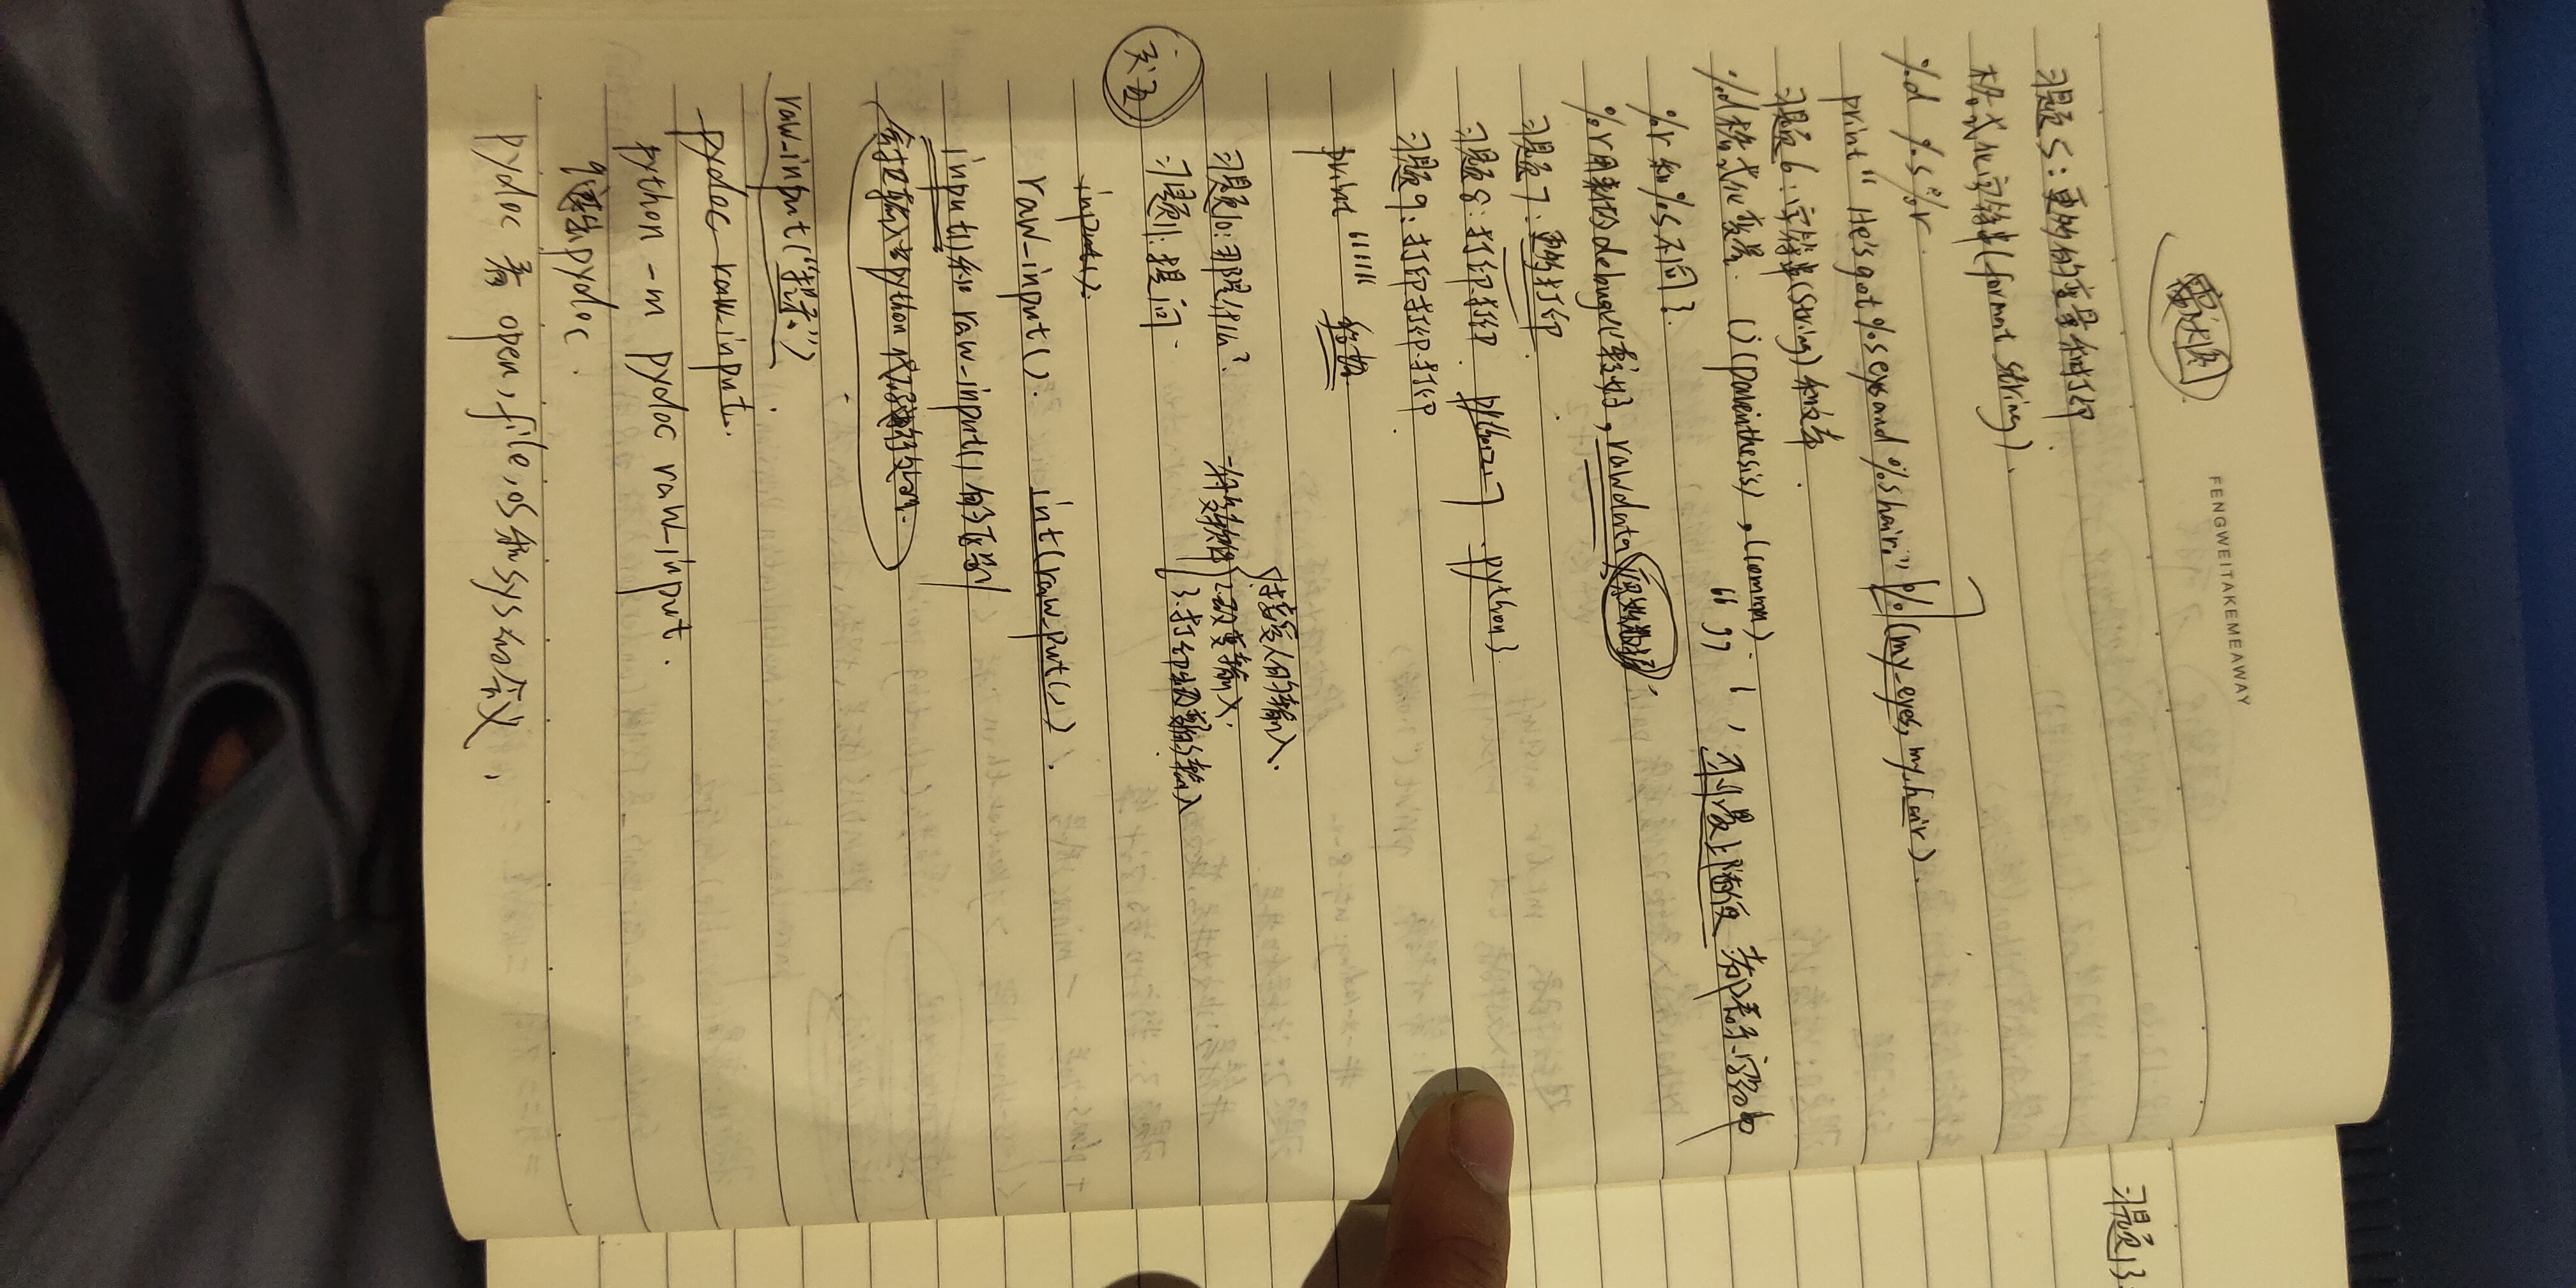 FENGWEITAKEMEAWAY
习题5:更多的变量和打印
格式化字符串(format string).
%d %s %r.
print "He's got %s eyes and %s hair." %(my_eyes, my_hair).
习题6:字符串(string)和文本.
%d格式化变量. ()(parenthesis) , (comma).
" "
%r和%s不同?
%r用来做debug比较好, raw data 原始数据.
习题7:更多打印
习题8:打印,打印
python
习题9:打印,打印,打印
print """
习题10:那是什么?
习题11:提问.
1.接受人的输入.
2.改变输入.
3.打印出改变了的输入
input().
raw_input(). int(raw_put()).
input()和 raw_input() 有何不同
会把输入当python代码进行处理.
raw_input("提示:").
pydoc raw_input.
python -m pydoc raw_input.
q退出pydoc.
pydoc 看 open, file, os和sys的含义.
习题13